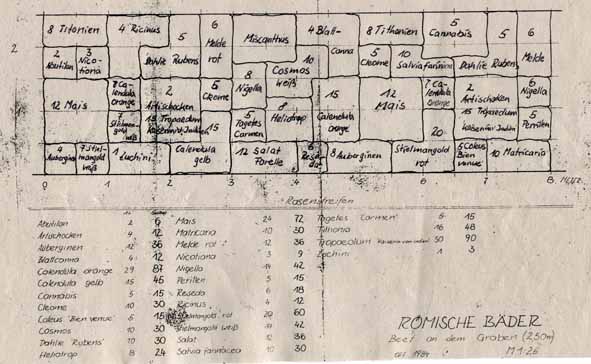 8 Titonien 4 Ricinus 5 6 Melde rot Miscanthus 4 Blatt- Canna 8 Tithonien 5 Cannabis 5 6
2 Abutilon 3 Nico- tiona Dahlie Rubens 10 5 Cleome 10 Salvia farinacea Dahlie Rubens Melde
8 Ca- lendula orange 2 5 Cleome 8 Nigella Cosmos weiß 15 12 7 Ca- lendula orange 2 6 Nigella
12 Mais Artischocken 8 Mais Artischocken
15 Tropaeolum 15 5 Tagetes Carmen Heliotrop Calendula orange 20 15 Tropaeolum 5 Perillen
4 Auberginen 1 Zuchini Calendula gelb 12 Salat Forelle 6 Rese- da 8 Auberginen Stielmangold rot 5 Coleus Bien venue 10 Matricaria
0 1 2 3 4 5 6 7 8 Meter
Rasenstreifen
Abutilon 2 6 Mais 24 72 Tagetes Carmen 5 15
Artischocken 4 12 Matricaria 10 30 Tithonia 16 48
Auberginen 12 36 Melde rot 12 36 Tropaeolum 50 90
Blattcanna 4 12 Nicotiana 3 9 Zuchini 1 3
Calendula orange 29 87 Nigella 14 42
Calendula gelb 15 45 Perillen 5 15
Cannabis 5 15 Reseda 6 18
Cleome 10 30 Ricinus 4 12
Coleus 'Bien venue' 5 15 Stielmangold rot 20 60
Cosmos 10 30 Stielmangold weiß 14 42
Dahlie 'Rubens' 10 30 Salat 12 36
Heliotrop 8 24 Salvia farinacea 10 30
RÖMISCHE BÄDER
Beet an dem Graben (2,50m)
M 1:25